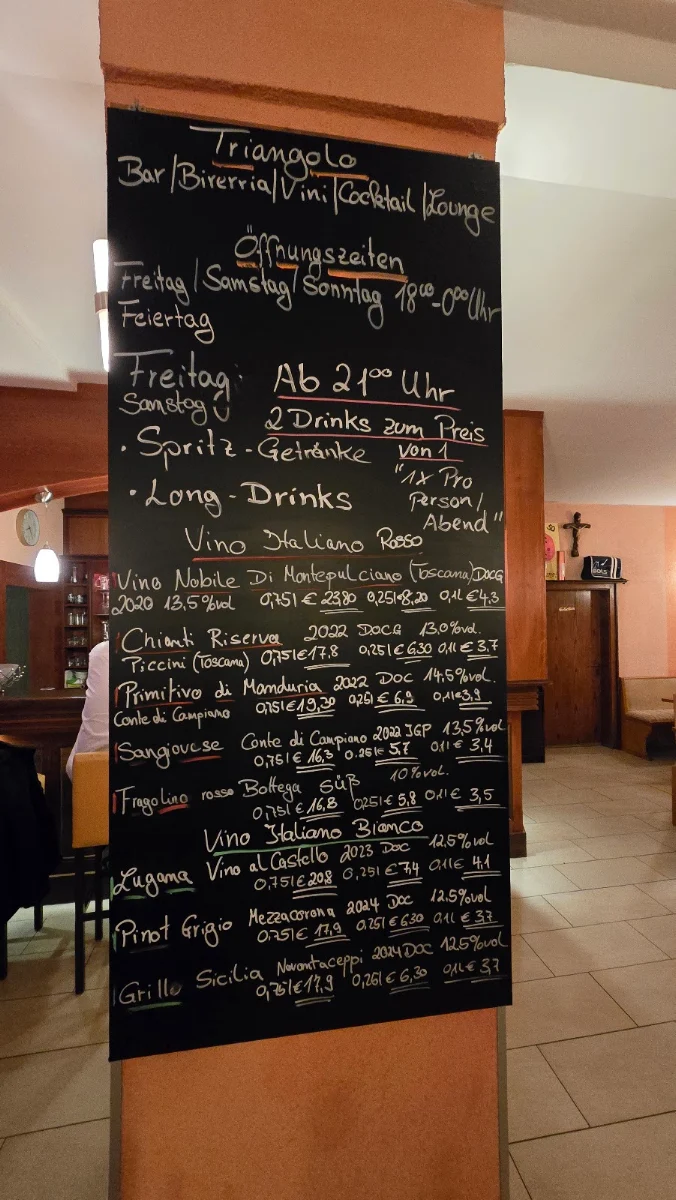 Triangolo
Bar/Birerria/Vini/Cocktail/Lounge
Öffnungszeiten
Freitag/Samstag/Sonntag 18⁰⁰-0⁰⁰ Uhr
Feiertag
Freitag: Ab 21⁰⁰ Uhr
Samstag
2 Drinks zum Preis
• Spritz-Getränke von 1
"1x Pro
• Long-Drinks Person/
Abend"
Vino Italiano Rosso
Vino Nobile Di Montepulciano (Toscana) DOCG
2020 13,5%vol 0,75l € 23,80 0,25l € 8,20 0,1l € 4,3
Chianti Riserva 2022 DOCG 13,0%vol.
Piccini (Toscana) 0,75l € 17,8 0,25l € 6,30 0,1l € 3,7
Primitivo di Manduria 2022 DOC 14,5%vol.
Conte di Campiano 0,75l € 19,20 0,25l € 6,9 0,1l € 3,9
Sangiovese Conte di Campiano 2022 IGP 13,5%vol
0,75l € 16,3 0.25l € 5,7 0,1l € 3,4
10%vol.
Fragolino rosso Bottega süß
0,75l € 16,8 0,25l € 5,8 0,1l € 3,5
Vino Italiano Bianco
Lugana Vino al Castello 2023 DOC 12,5%vol
0,75l € 20,8 0,25l € 7,4 0,1l € 4,1
Pinot Grigio Mezzacorona 2024 DOC 12,5%vol
0,75l € 17,9 0,25l € 6,30 0,1l € 3,7
Grillo Sicilia Novantaceppi 2024 DOC 12,5%vol
0,75l € 17,9 0,25l € 6,30 0,1l € 3,7